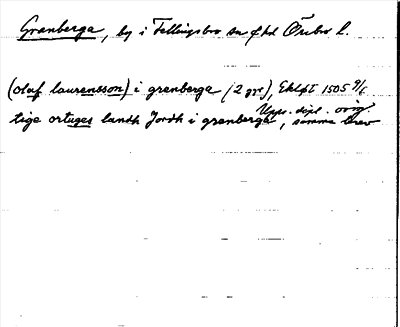 Granberga, by i Fellingsbro sn o hd Örebro l.
(olaf laurensson) i grenberga (2 ggr), 1505 9/6
Upps. dipl. orig.
tige ortuges landh Jordh i grenberga, samma brev